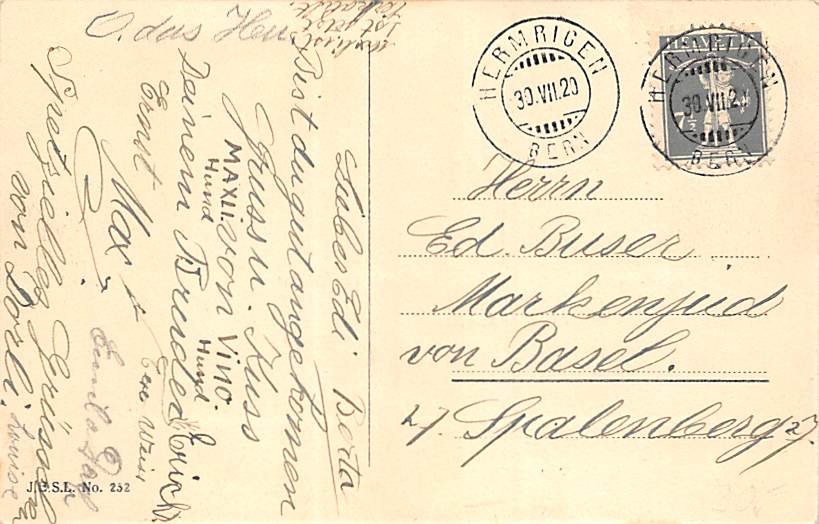 O. das Heu
Liebes Edi Berta
Bist du gut angekomen
Gruss u. Kuss
MAXLI. von Vino.
Hund Hund
Deinem Bruder Erich
Ernst
Max
Spetzielles Grüsschen
von Dorli. Louise
HERMRIGEN
30.VII.20
BERN
HELVETIA
7½
HERMRIGEN
30.VII.20
BERN
Herrn
Ed. Buser
Markenjud
von Basel.
27. Spalenberg 27.
J.G.S.L. No. 252